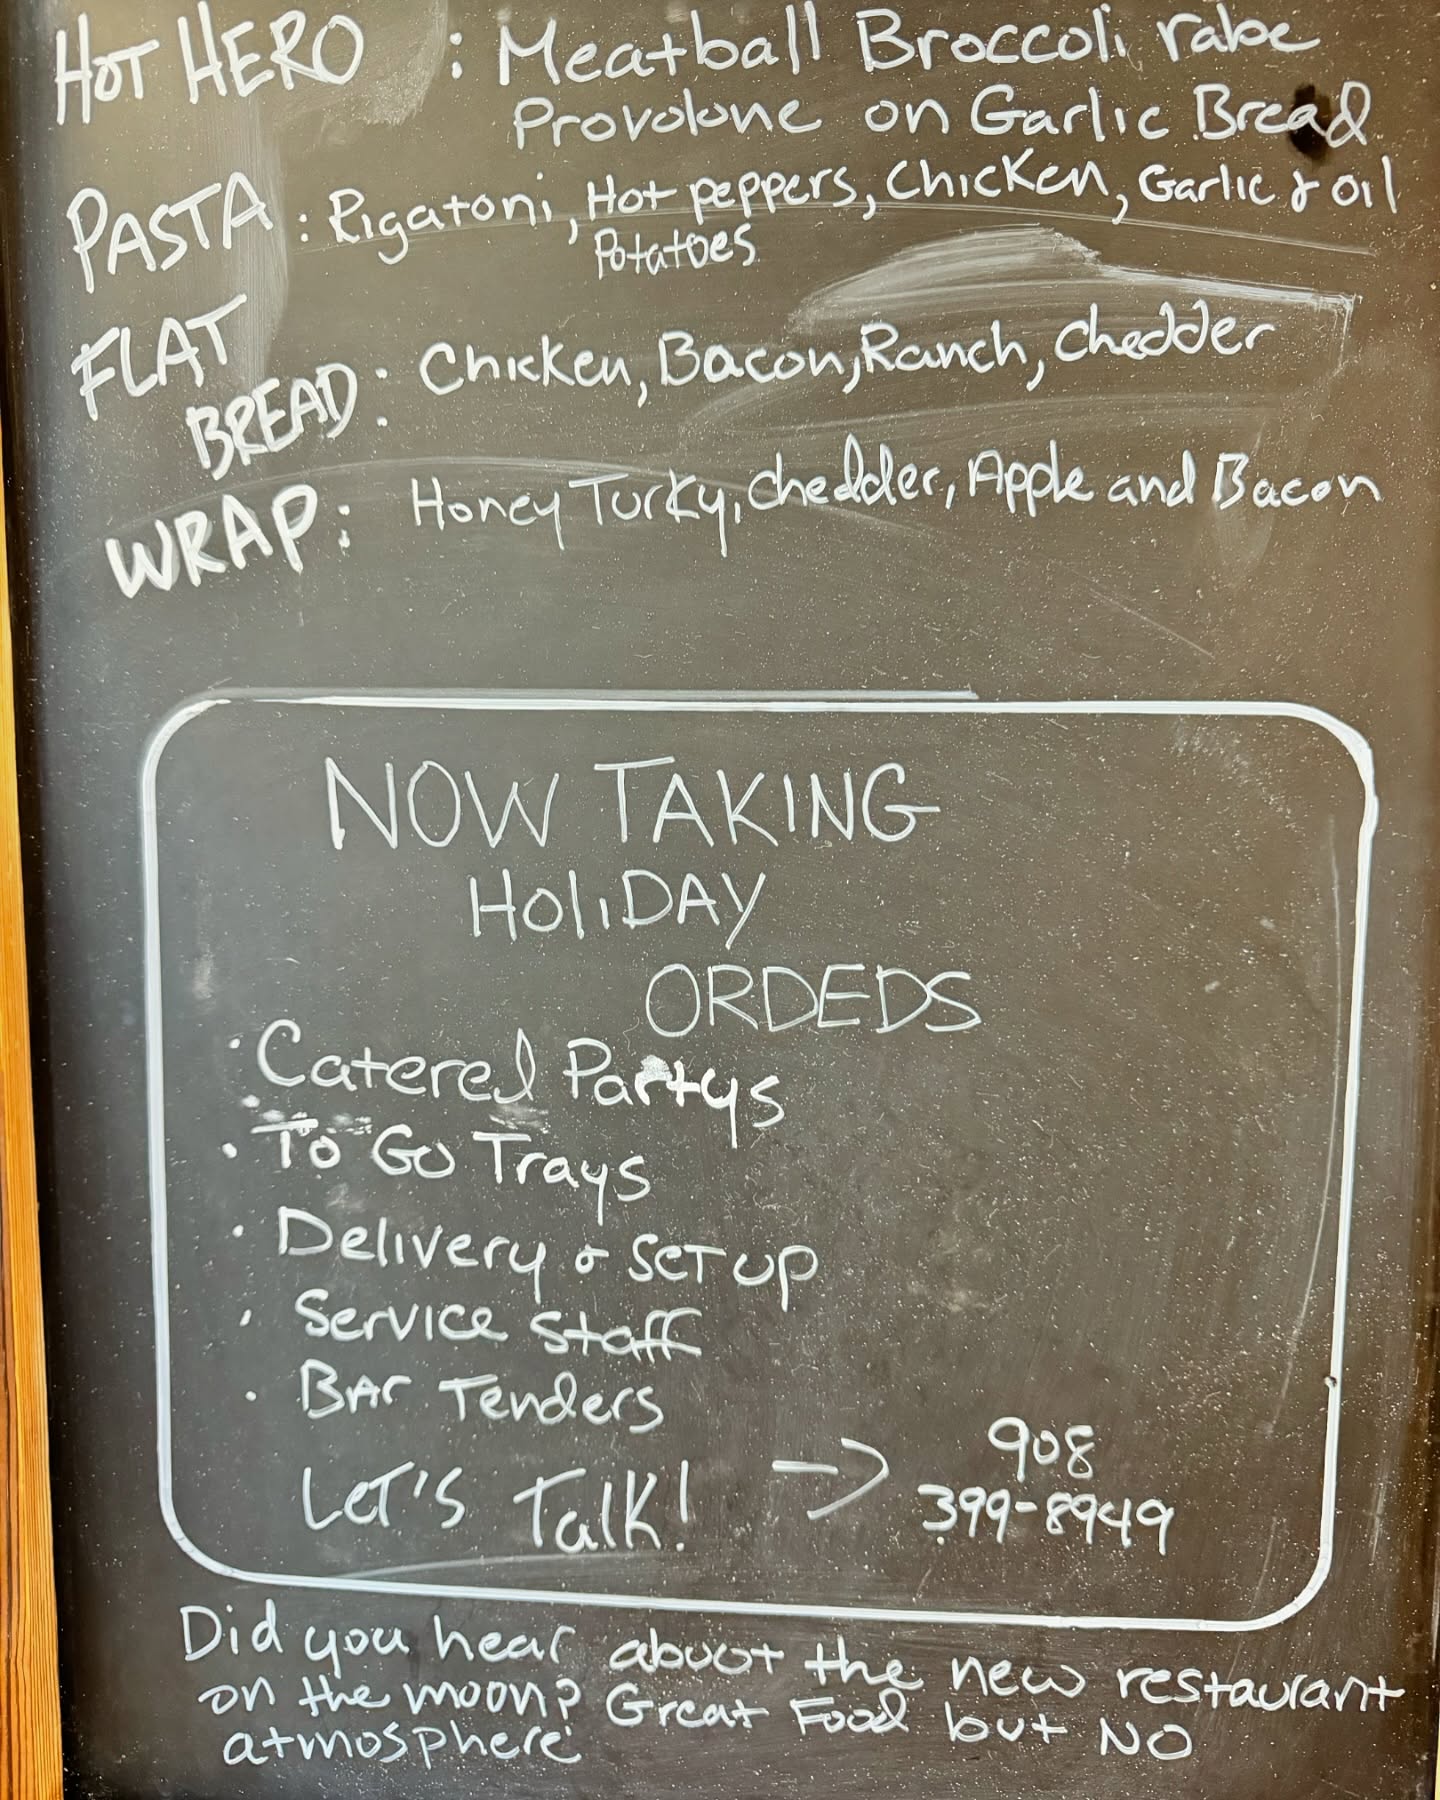 HOT HERO : Meatball Broccoli rabe
Provolone on Garlic Bread
PASTA : Rigatoni, Hot peppers, Chicken, Garlic & oil
Potatoes
FLAT
BREAD : Chicken, Bacon, Ranch, chedder
WRAP : Honey Turky, chedder, Apple and Bacon
NOW TAKING
HoliDAY
ORDEDS
• Catered Partys
• To Go Trays
• Delivery & SET UP
• Service Staff
• BAr Tenders
LET'S Talk! → 908
399-8949
Did you hear about the new restaurant
on the moon? Great Food but NO
atmosphere